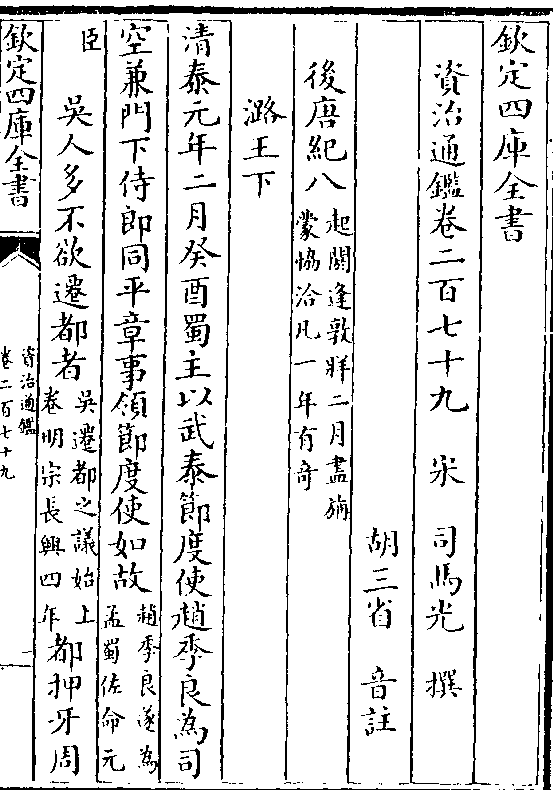 欽定四庫全書
資治通鑑卷二百七十九 宋 司馬光 撰
胡三省 音註
後唐紀八起閼逢敦牂二月盡旃蒙協洽凡一年有奇
潞王下
清泰元年二月癸酉蜀主以武泰節度使趙季良為司
空兼門下侍郎同平章事領節度使如故趙季良遂為孟蜀佐命元
臣吳人多不欲遷都者吳遷都之議始上卷明宗長興四年都押牙周
欽定四庫全書
資治通鑑
卷二百七十九